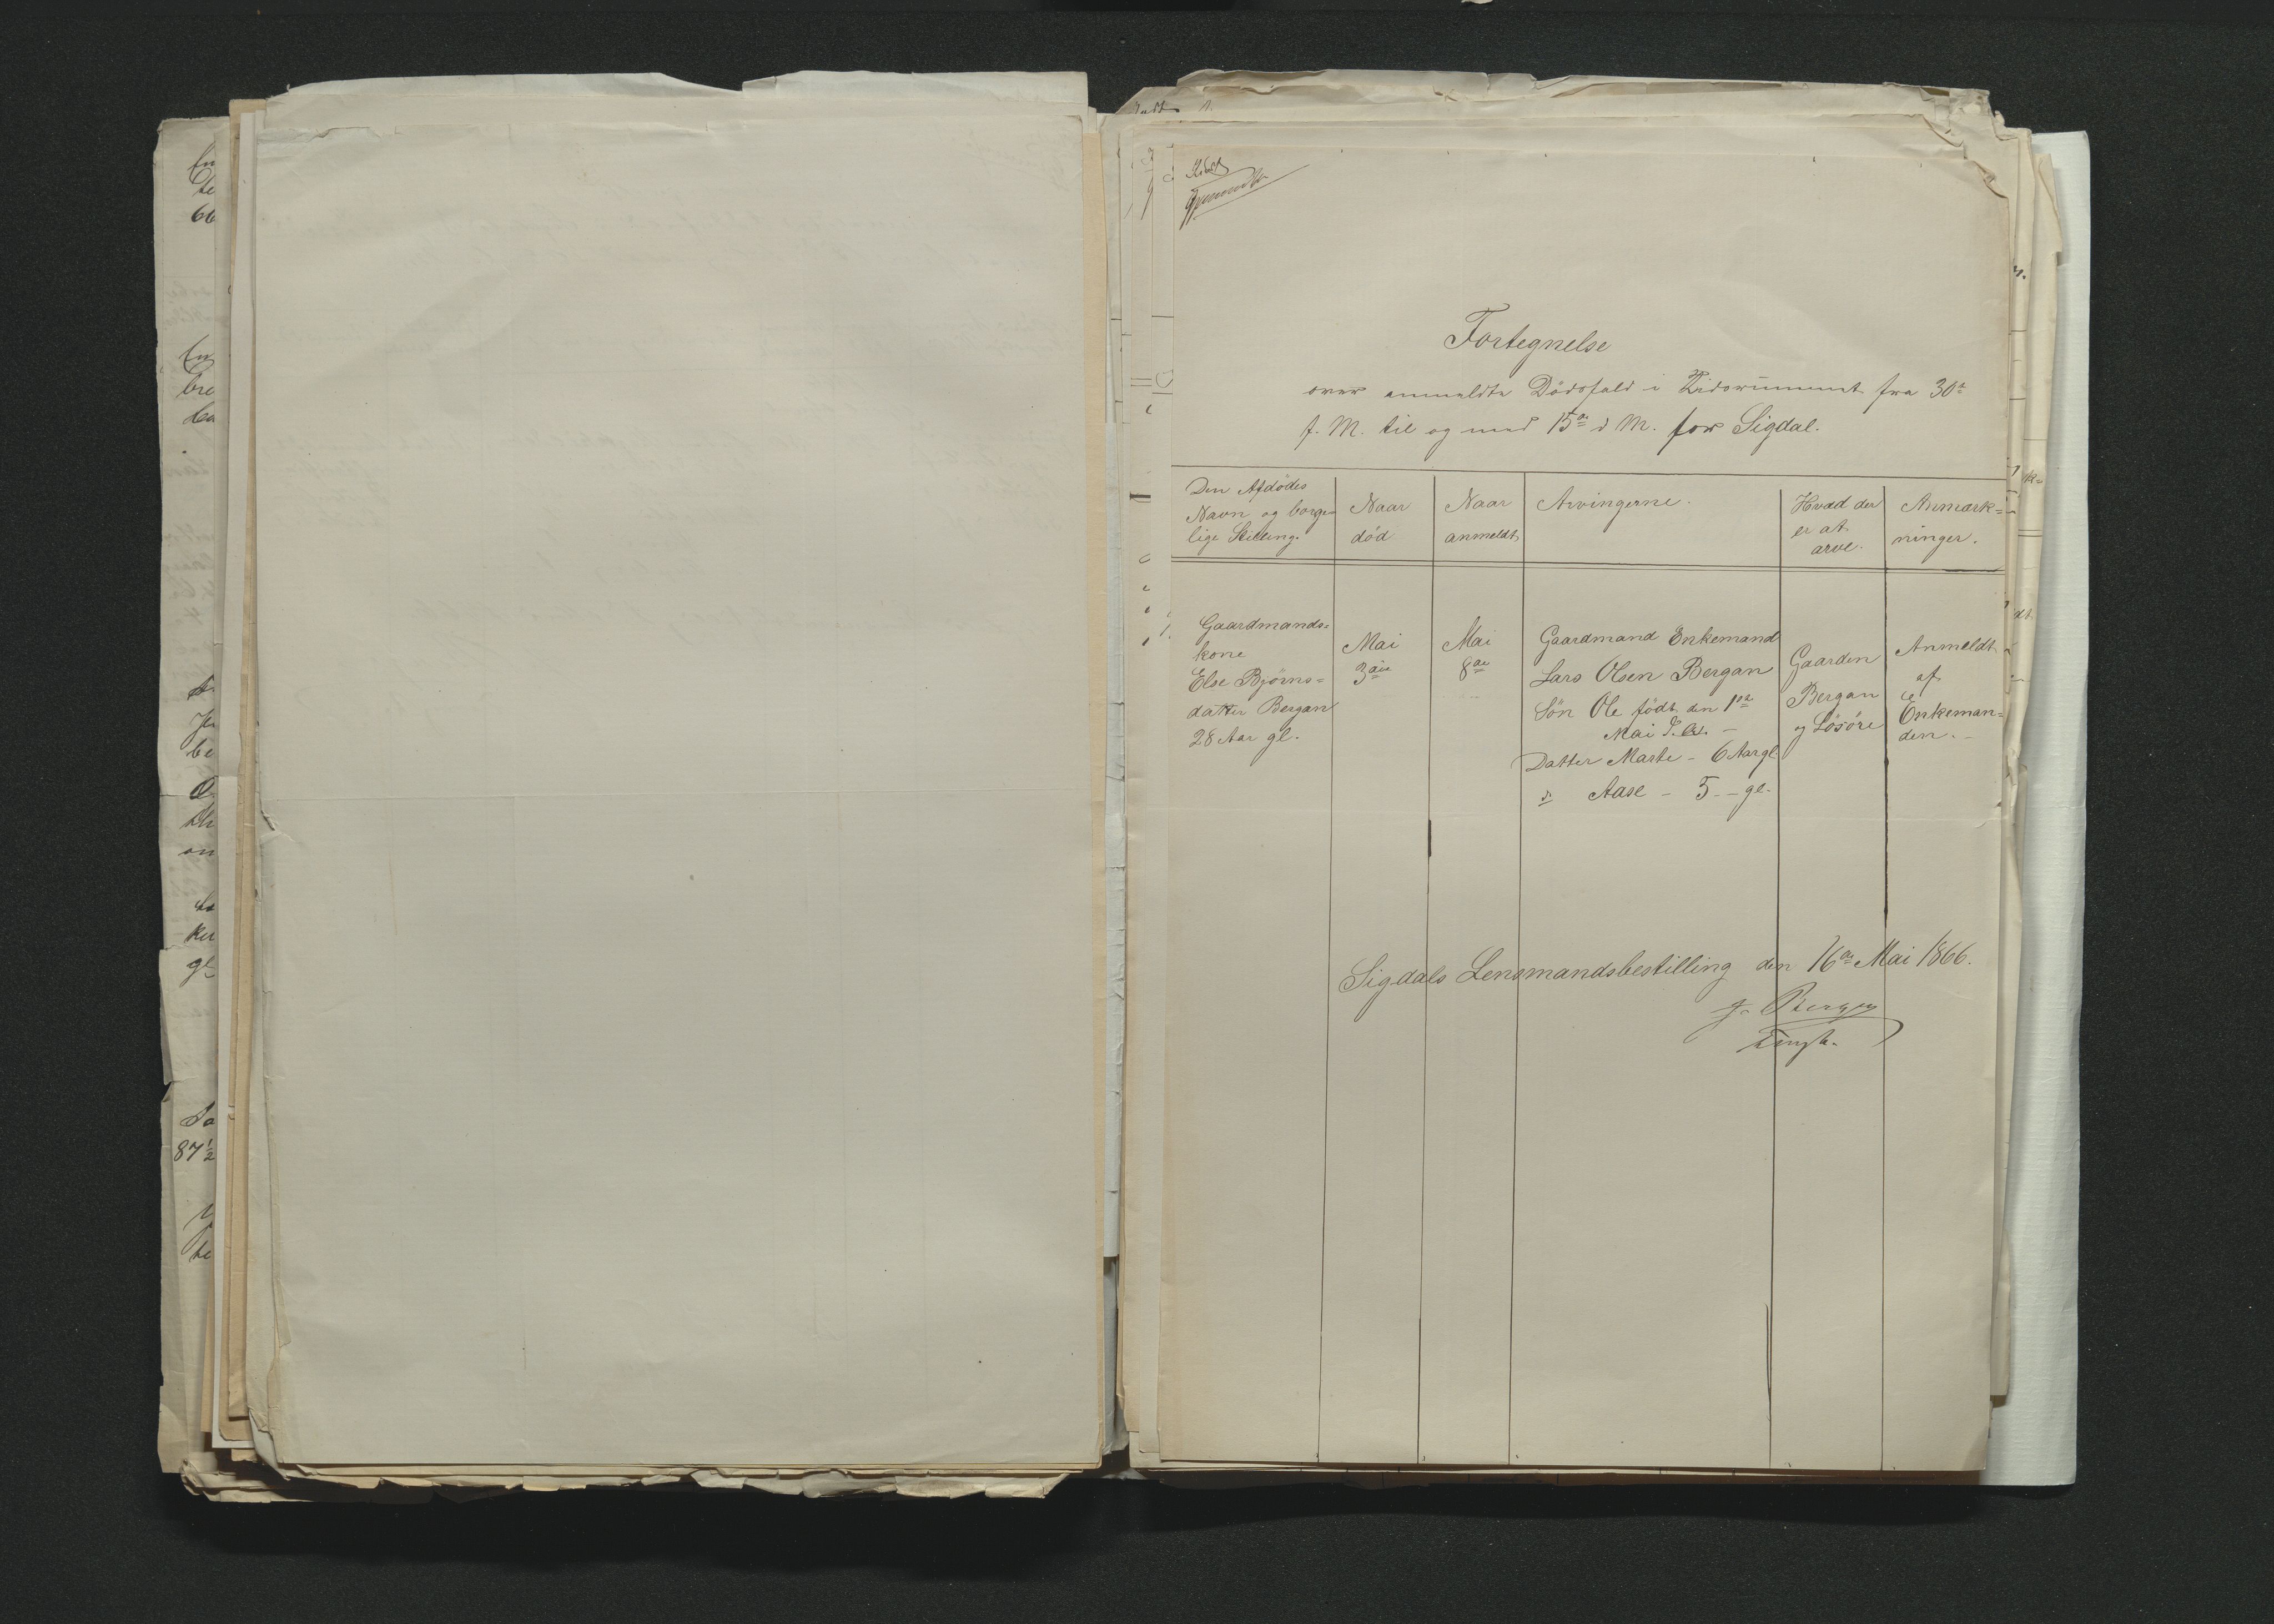 Fortegnelse
over anmeldte Dödsfald i Tidsrummet fra 30te
f. M. til og med 15de d M. for Sigdal.
Den Afdödes
Navn og borge=
lige Stilling.
Naar
död
Naar
anmeldt
Arvingerne.
Hvad der
er at
arve.
Anmærk=
ninger.
1.
Gaardmands=
kone
Else Björns=
datter Bergan
28 Aar gl.
Mai
3die
Mai
8de
Gaardmand Enkemand
Lars Olsen Bergan
Sön Ole födt den 1ste
Mai
Datter Marte - 6 Aar gl.
d: Aase - 5 - - gl.
Gaarden
Bergan
og Lösöre
Anmeldt
af
Enkeman=
den. -
Sigdals Lensmandsbestilling den 16de Mai 1866.